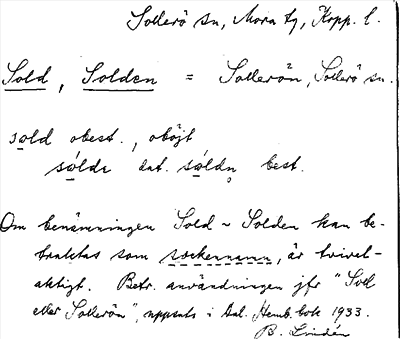 Sollerö sn, Mora tg, Kopp. l.
Sold, Solden = Sollerön, Sollerö sn.
sold obest., oböjt
såldı dat. såldn̥ best.
Om benämningen Sold ~ Solden kan be-
traktas som sockennamn, är tvivel-
aktigt. Betr. användningen jfr "Soll
eller Sollerön", uppsats i Dal. Hemb. bok 1933.
B. Lindén